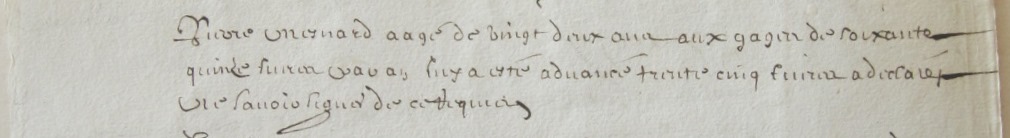 Pierre Mesnard aagé de vingt deux ans aux gages de soixante
quinze livres par an luy a esté advancé trente cinq livres a déclaré
ne savoir signer de ce requis